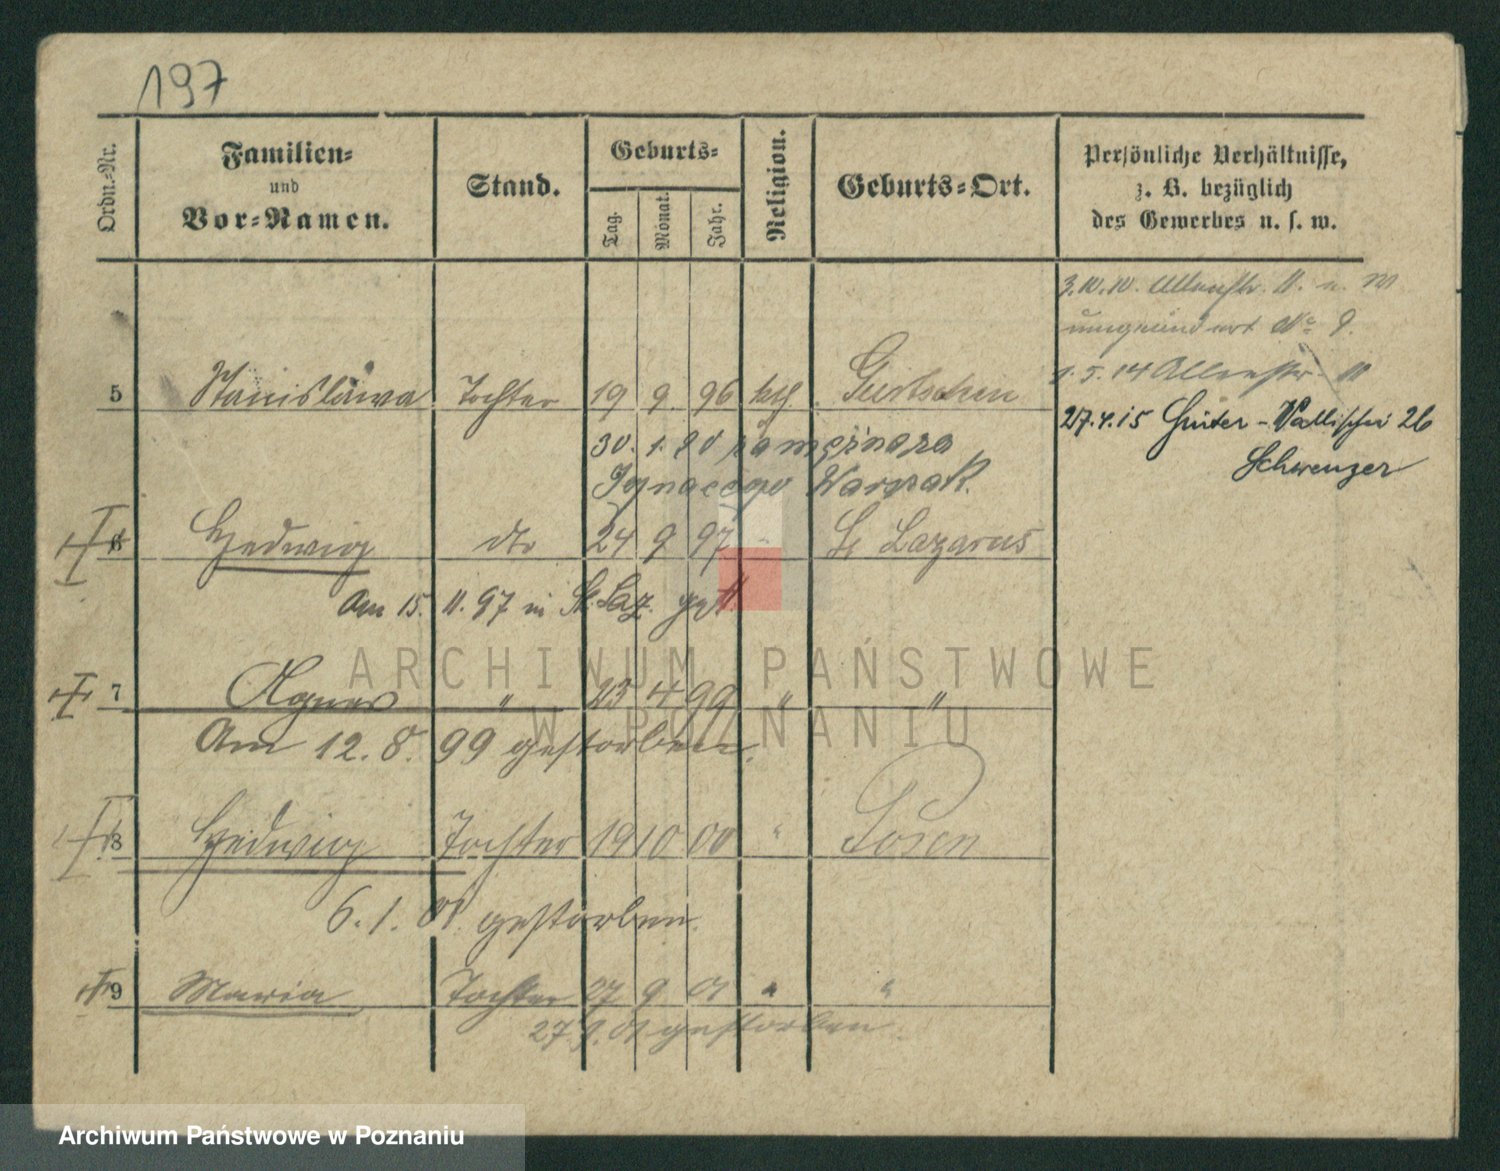 197
Ordn.-Nr.
Familien-
und
Vor-Namen.
Stand.
Geburts-
Tag.
Monat.
Jahr.
Religion.
Geburts-Ort.
Persönliche Verhältnisse,
z. B. bezüglich
des Gewerbes u. s. w.
3.10.10. Allerstr. 11. u. W
umgeändert No 9.
5 Stanislawa Tochter 19 9. 96 kth. Gurtschin
1.5.14 Allerstr. 11
27.4.15 Hinter-Wallischei 26
Schwenzer
30. 1. 20 zamężna za
Ignacego Warzak.
6 Hedwig dto 24 9 97 " St Lazarus
Am 15. 11. 97 in St. Laz. gest
7 Agnes " 23 4 99 " "
Am 12. 8. 99 gestorben.
8 Hedwig Tochter 19 10 00 " Posen
6. 1. 01 gestorben.
9 Maria Tochter 27 9 01 " "
27.9.01 gestorben.
ARCHIWUM PAŃSTWOWE
W POZNANIU
Archiwum Państwowe w Poznaniu